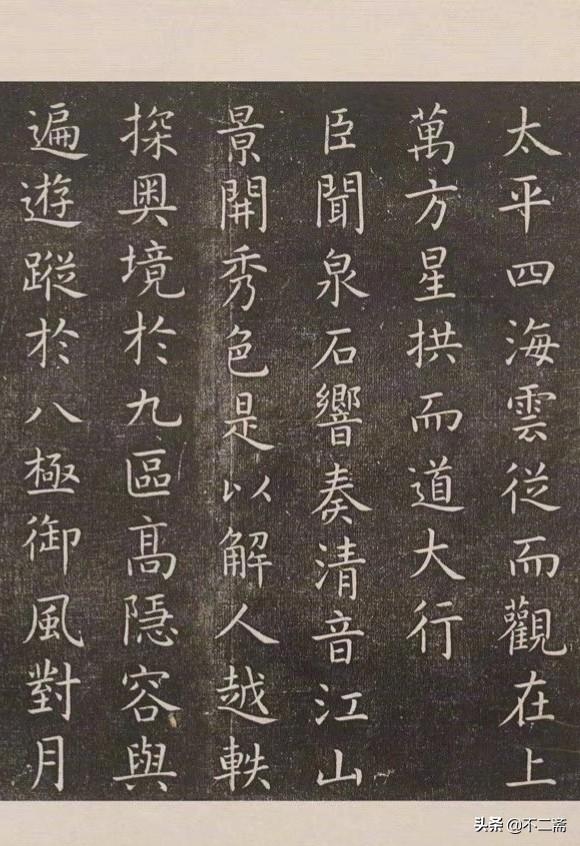 太平四海雲從而觀在上
萬方星拱而道大行
臣聞泉石響奏清音江山
景開秀色是以解人越軼
探奥境於九區高隱容與
遍遊蹤於八極御風對月
头条 @不二斋